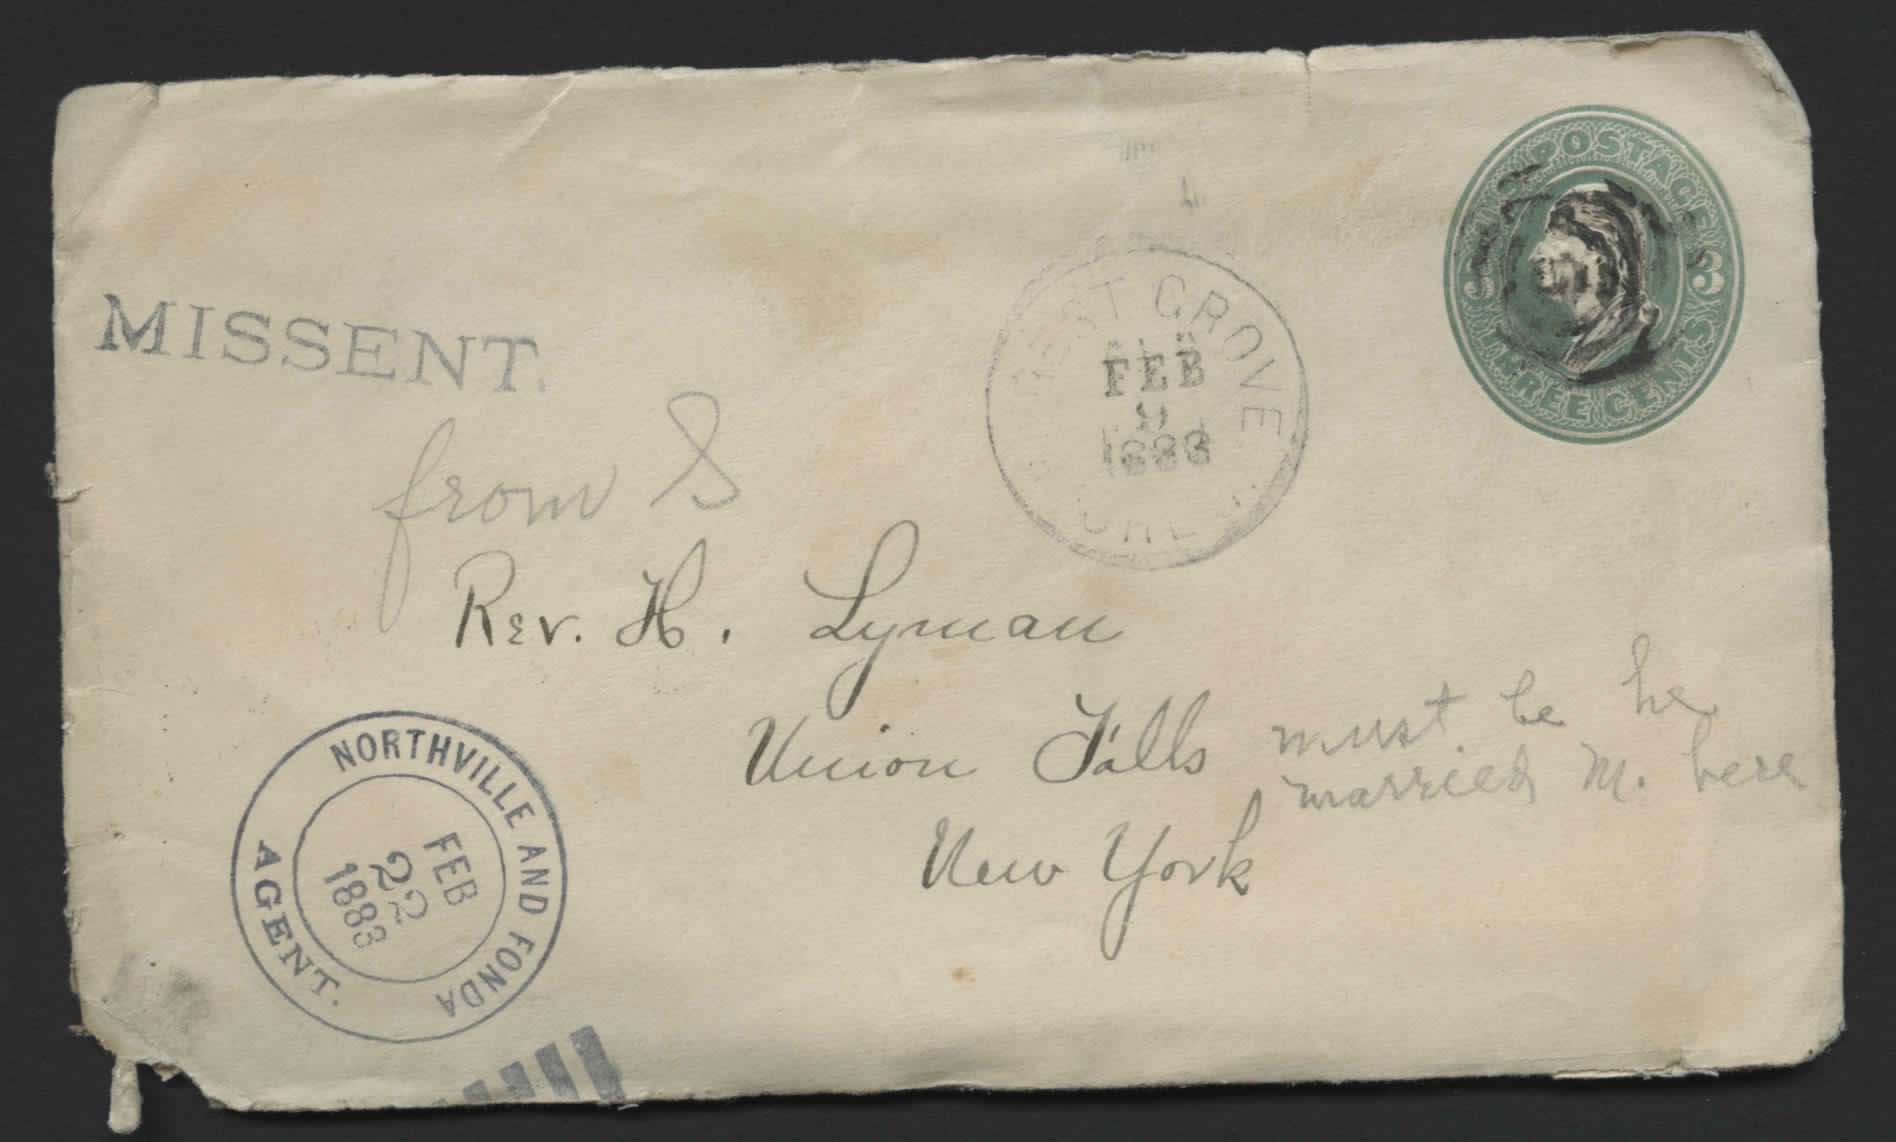 U.S. POSTAGE
3 3
THREE CENTS
MISSENT.
FOREST GROVE
FEB
9
1883
OREG
from S
Rev. H. Lyman
Union Falls
New York
must be he
married M. here
NORTHVILLE AND FONDA
FEB
22
1883
AGENT.